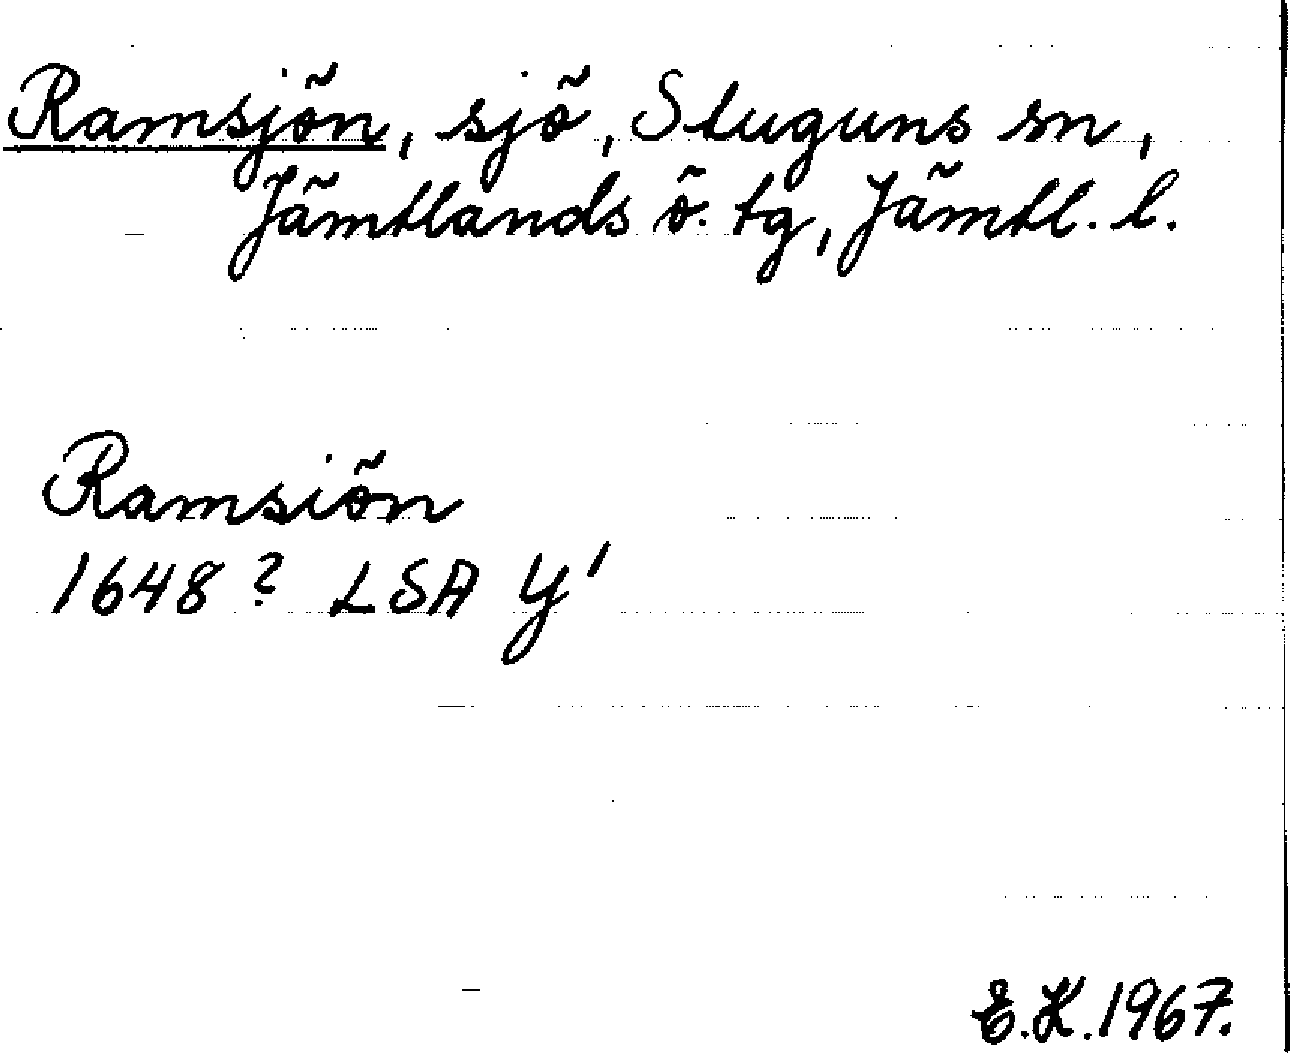 Ramsjön, sjö, Stuguns sn,
Jämtlands ö. tg, Jämtl. l.
Ramsiön
1648? LSA Y'
E.K.1967.